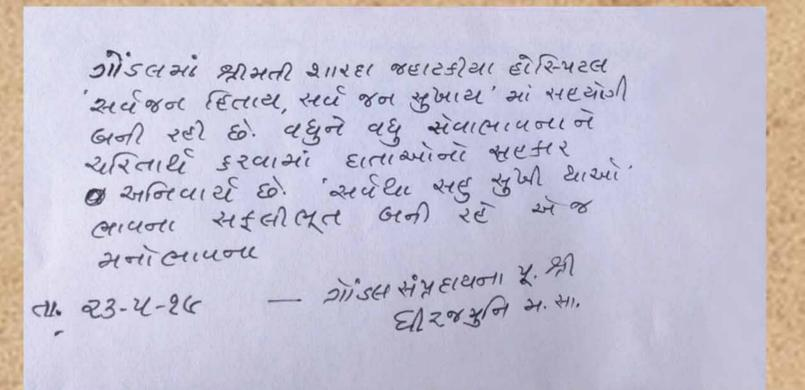 ગોંડલમાં શ્રીમતી શારદા જહાટકીયા હોસ્પિટલ
'સર્વજન હિતાય, સર્વ જન સુખાય' માં સહયોગી
બની રહી છે. વધુને વધુ સેવાભાવનાને
ચરિતાર્થ કરવામાં દાતાઓનો સહકાર
અનિવાર્ય છે. 'સર્વથા સહુ સુખી થાઓ'
ભાવના સફલીભૂત બની રહે એ જ
મનોભાવના
તા. ૨૩-૫-૧૮ — ગોંડલ સંપ્રદાયના પૂ. શ્રી
ધીરજમુનિ મ. સા.